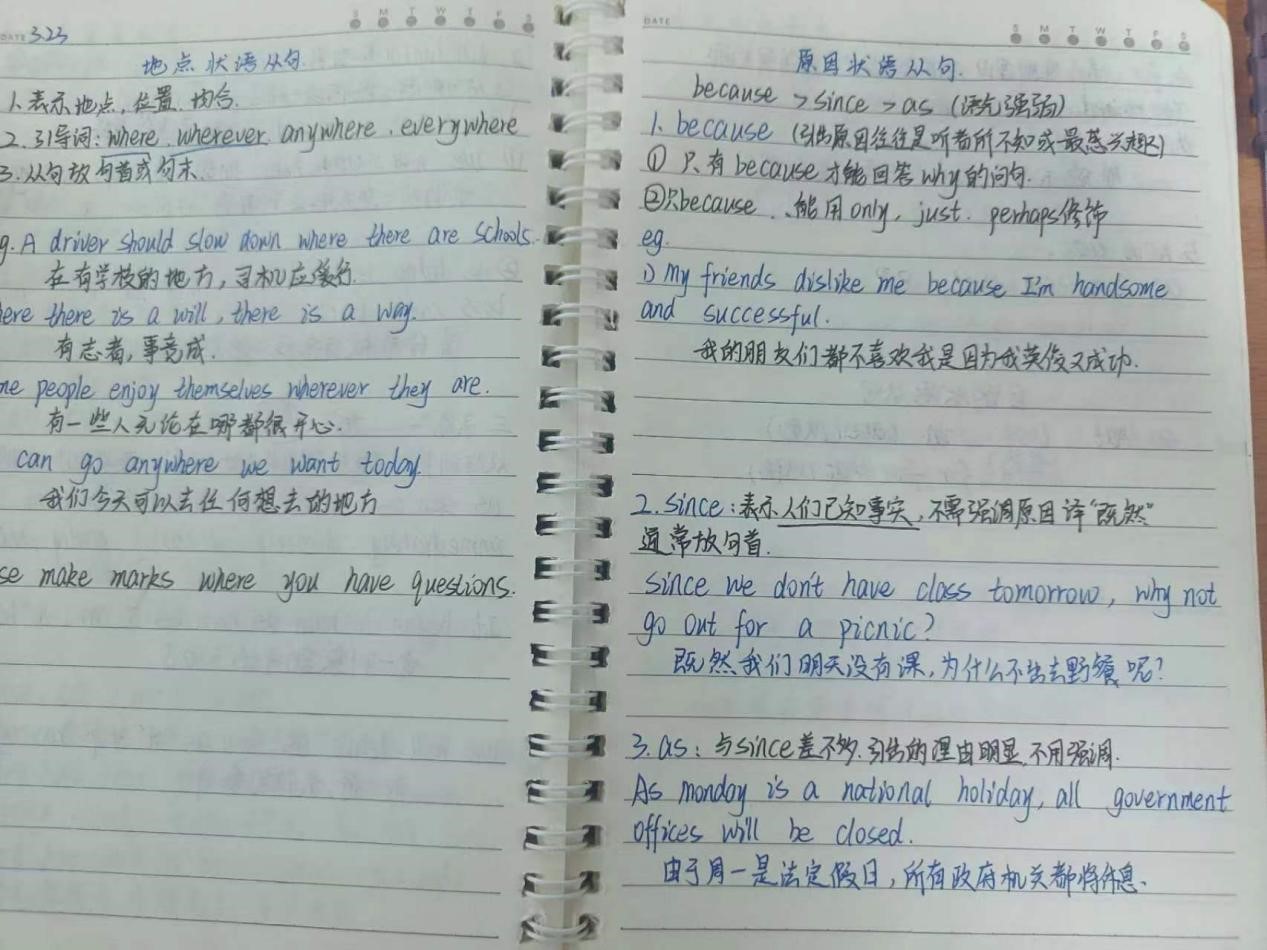 DATE 3.23
S M T W T F S
地点状语从句.
1.表示地点,位置.场合.
2.引导词:where.wherever.anywhere.everywhere
3.从句放句首或句末.
g.A driver should slow down where there are schools.
在有学校的地方,司机应慢行.
ere there is a will, there is a way.
有志者,事竟成.
me people enjoy themselves wherever they are.
有一些人无论在哪都很开心.
can go anywhere we want today.
我们今天可以去任何想去的地方
se make marks where you have questions.
DATE
S M T W T F S
原因状语从句.
because >since >as (语气强弱)
1. because (引出原因往往是听者所不知或最感兴趣)
① 只有because才能回答why的问句.
②只because 能用only, just. perhaps修饰
eg.
1) My friends dislike me because I'm handsome
and successful.
我的朋友们都不喜欢我是因为我英俊又成功.
2.since:表示人们已知事实,不需强调原因译"既然"
通常放句首.
Since we don't have class tomorrow, why not
go out for a picnic?
既然我们明天没有课,为什么不出去野餐呢?
3.as:与since差不多.引出的理由明显.不用强调.
As monday is a national holiday, all government
offices will be closed.
由于周一是法定假日,所有政府机关都将休息.